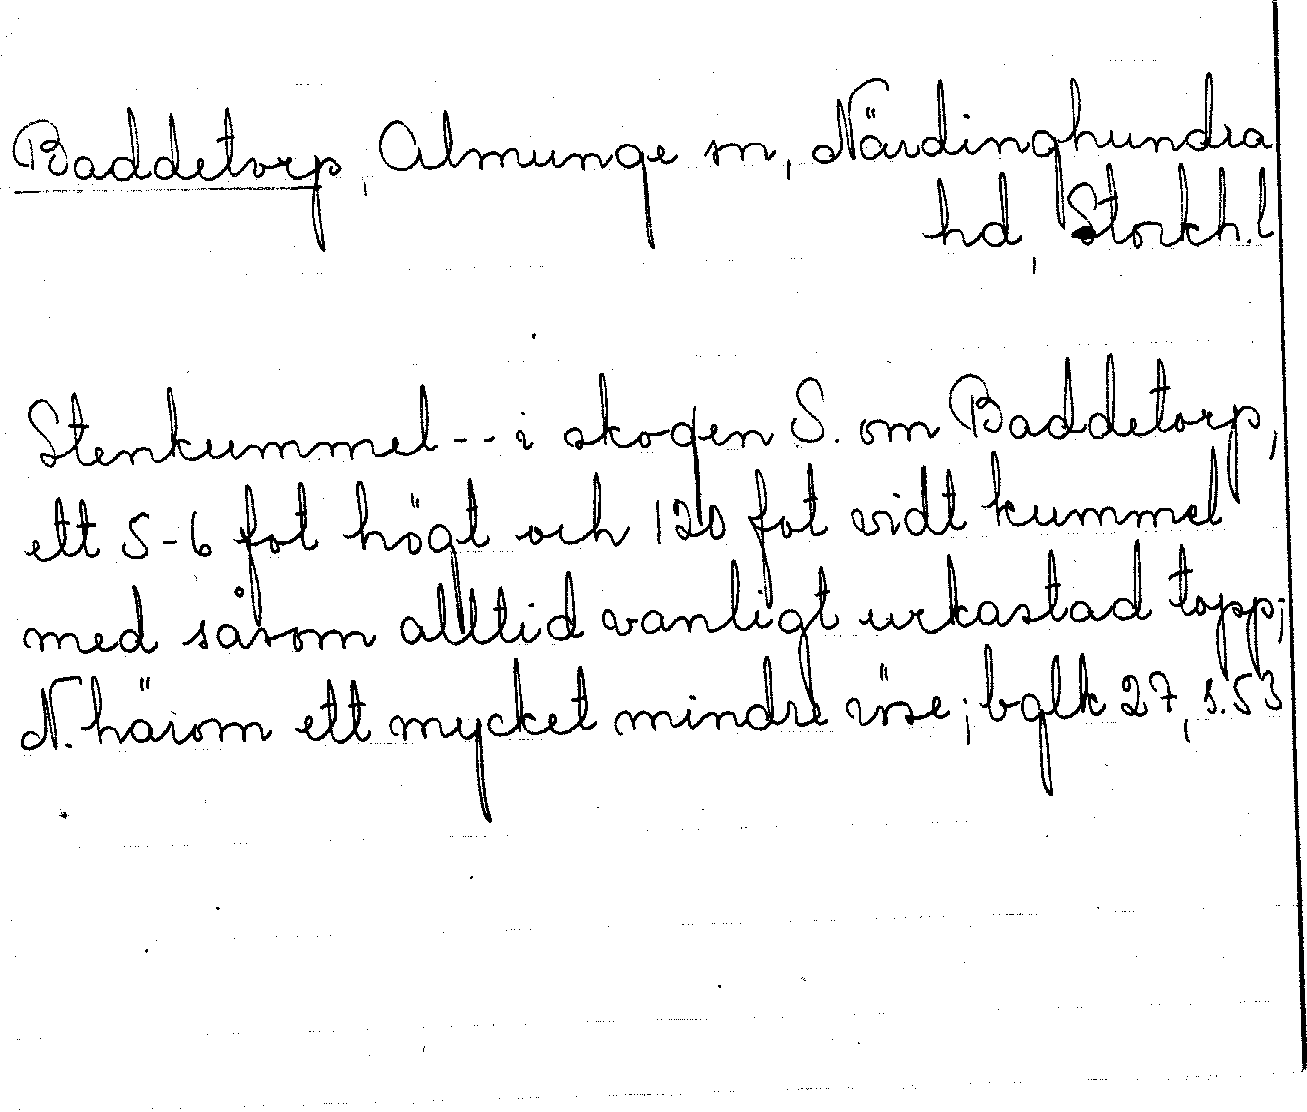 Baddetorp, Almunge sn, Närdinghundra
hd, Stockh.l
Stenkummel -- i skogen S. om Baddetorp,
ett 5-6 fot högt och 120 fot vidt kummel
med såsom alltid vanligt urkastad topp;
N. härom ett mycket mindre röse; bglk 27, s. 53